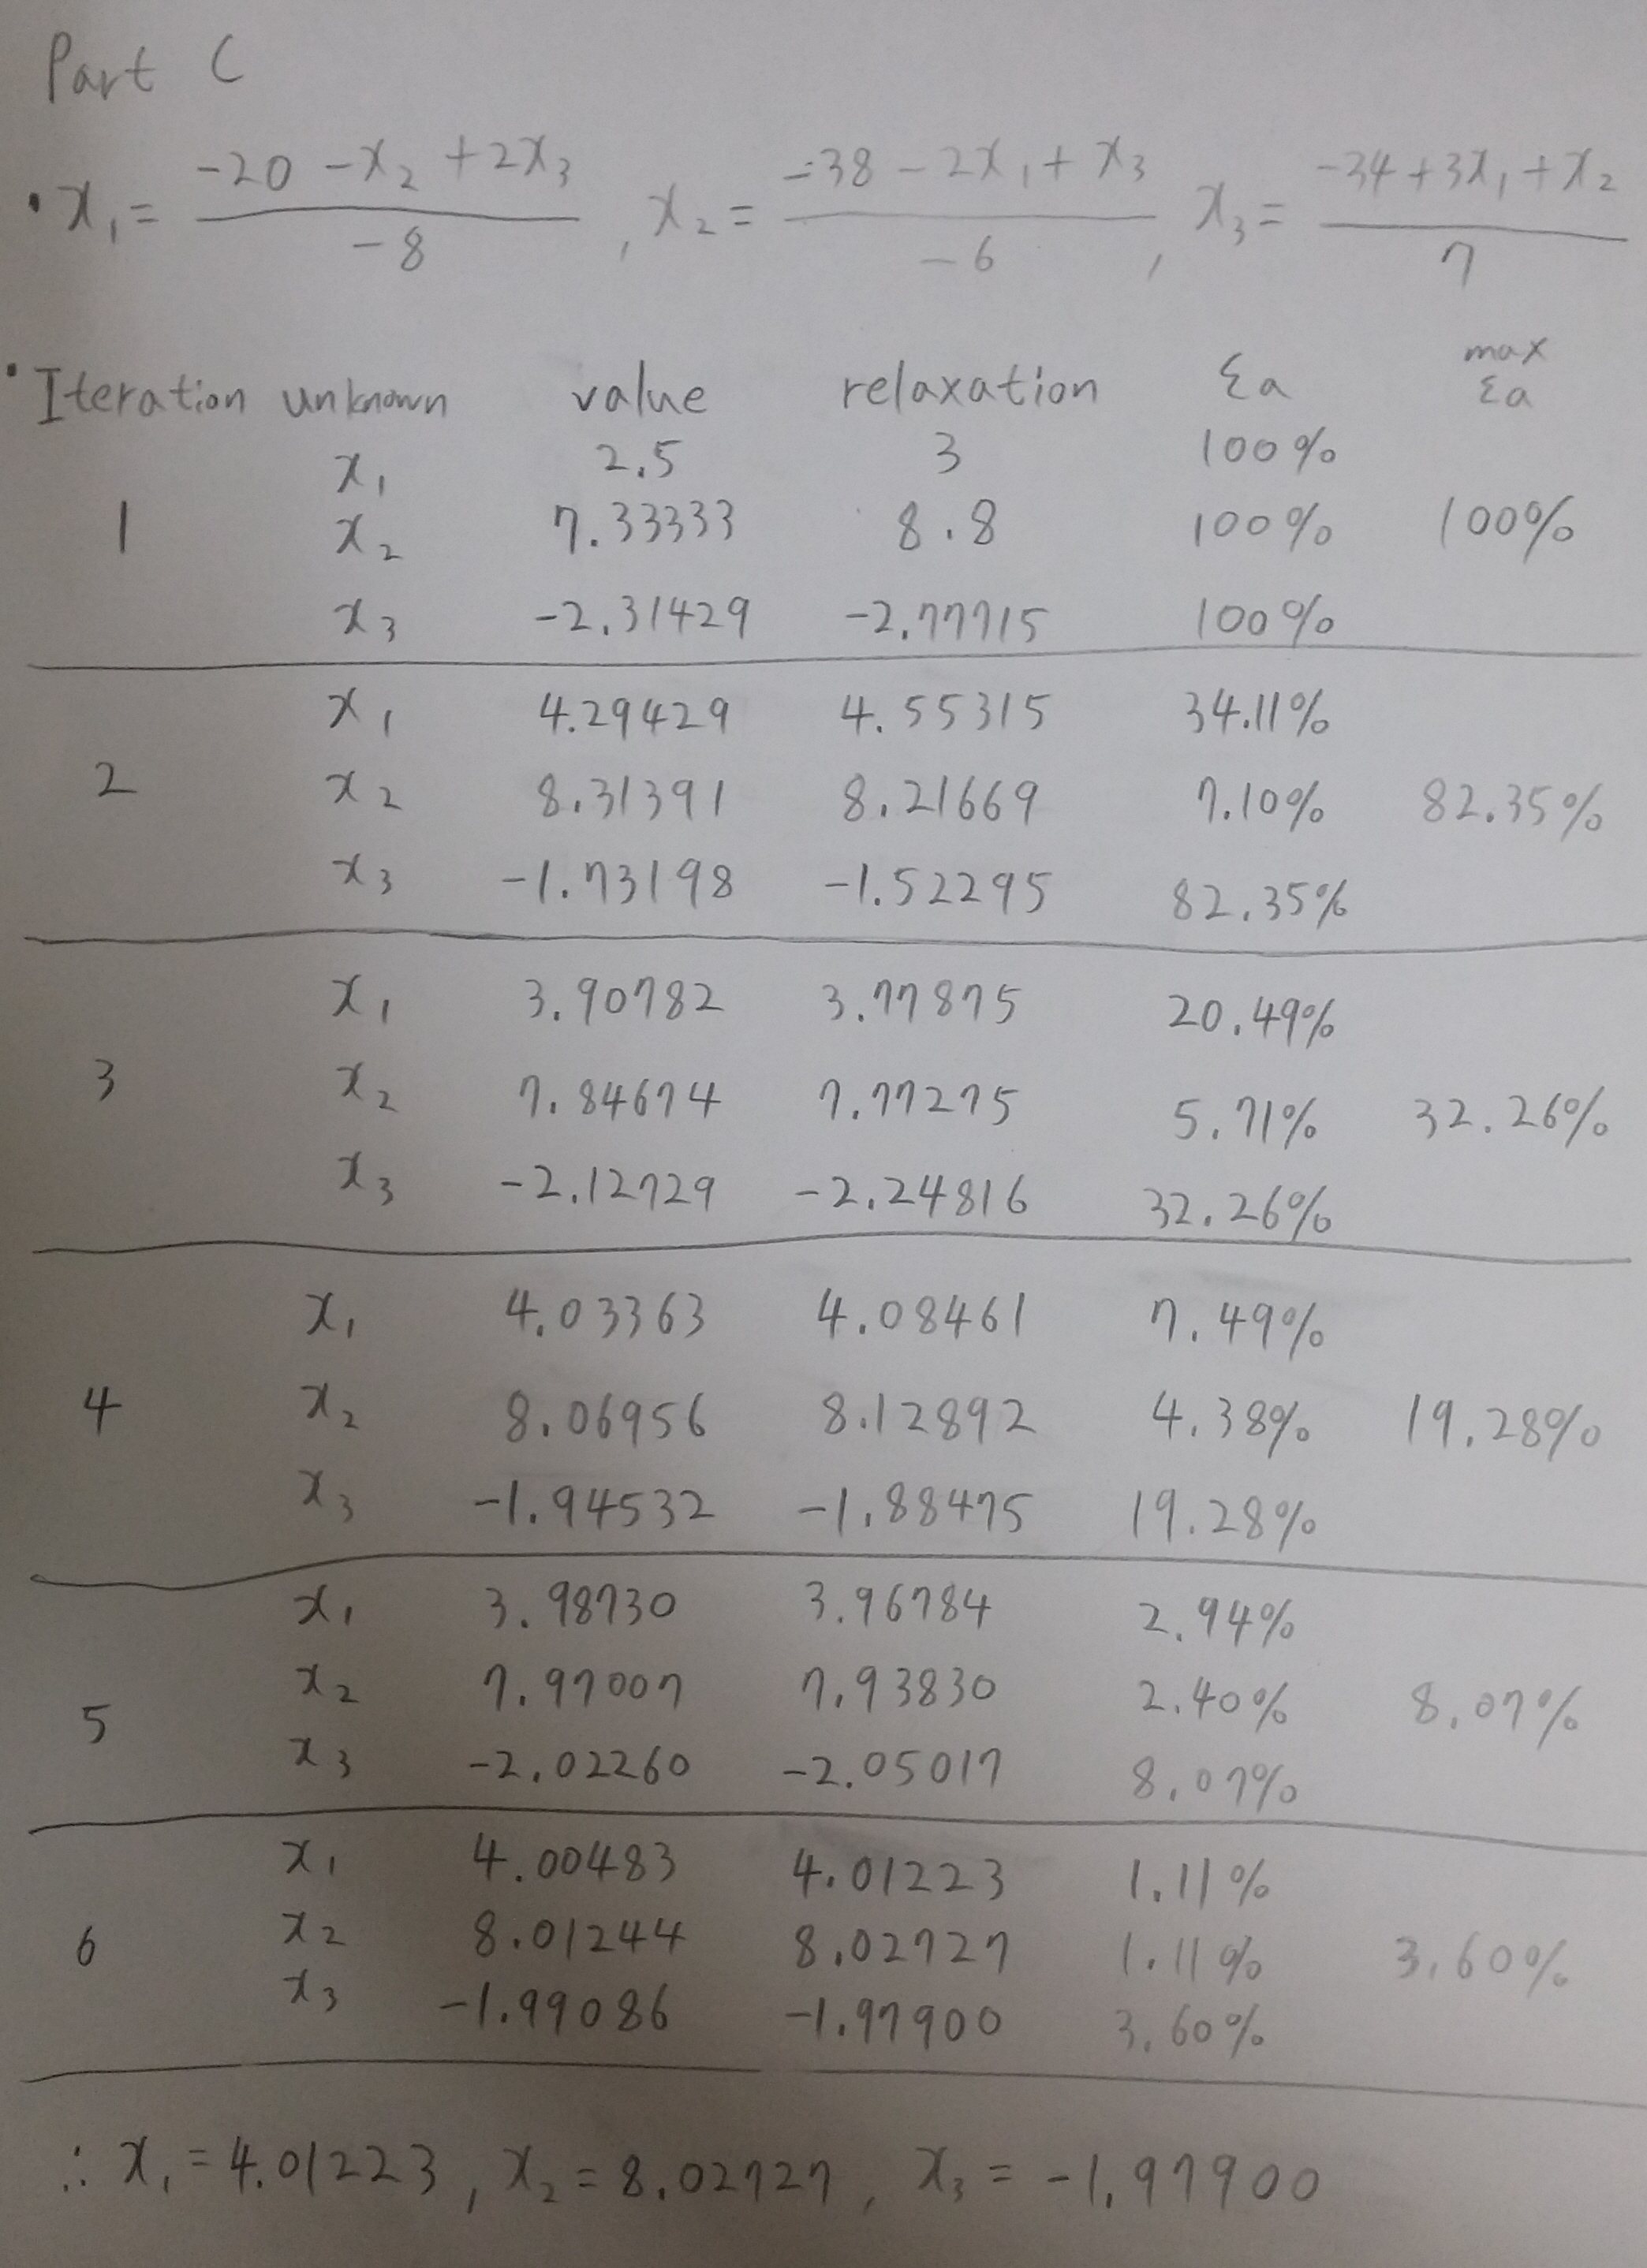 Part C
• x₁ = (-20 - x₂ + 2x₃) / -8 , x₂ = (-38 - 2x₁ + x₃) / -6 , x₃ = (-34 + 3x₁ + x₂) / 7
• Iteration unknown value relaxation εa max εa
x₁ 2.5 3 100%
1 x₂ 7.33333 8.8 100% 100%
x₃ -2.31429 -2.77715 100%
x₁ 4.29429 4.55315 34.11%
2 x₂ 8.31391 8.21669 7.10% 82.35%
x₃ -1.73198 -1.52295 82.35%
x₁ 3.90782 3.77875 20.49%
3 x₂ 7.84674 7.77275 5.71% 32.26%
x₃ -2.12729 -2.24816 32.26%
x₁ 4.03363 4.08461 7.49%
4 x₂ 8.06956 8.12892 4.38% 19.28%
x₃ -1.94532 -1.88475 19.28%
x₁ 3.98730 3.96784 2.94%
5 x₂ 7.97007 7.93830 2.40% 8.07%
x₃ -2.02260 -2.05017 8.07%
x₁ 4.00483 4.01223 1.11%
6 x₂ 8.01244 8.02727 1.11% 3.60%
x₃ -1.99086 -1.97900 3.60%
∴ x₁ = 4.01223 , x₂ = 8.02727 , x₃ = -1.97900